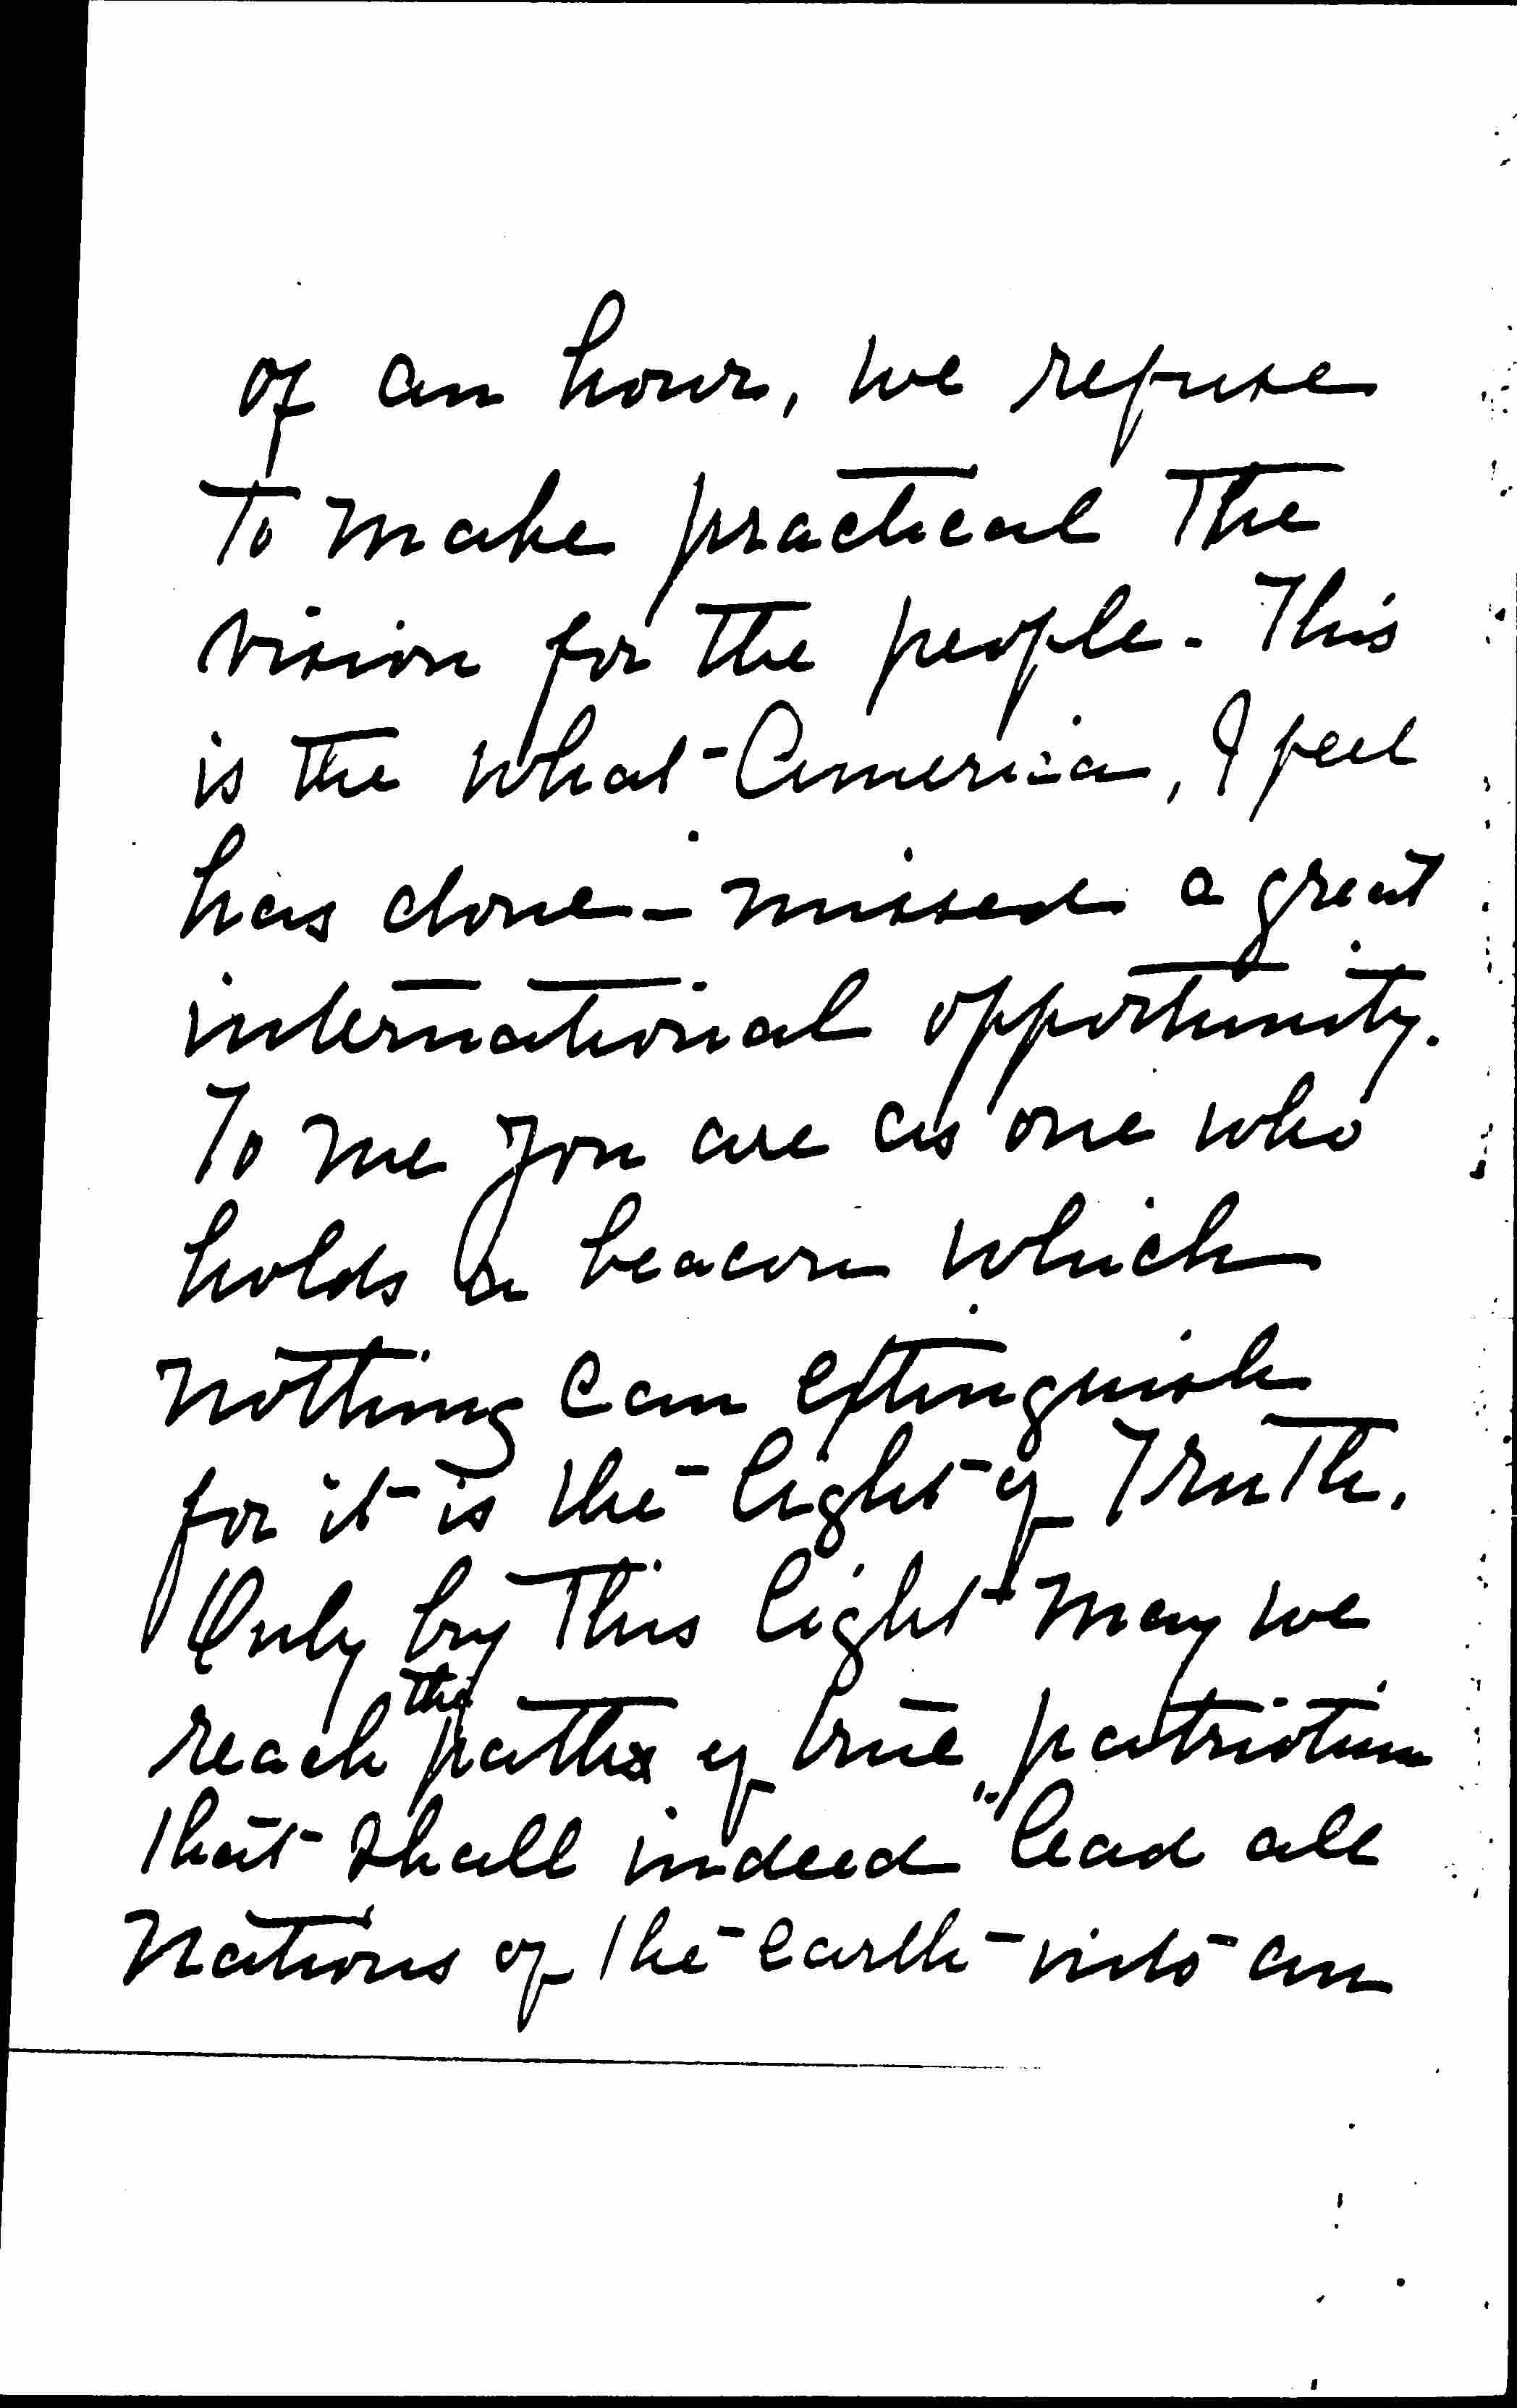 of an hour, we refuse
to make practical the
vision for the people. This
is the what America, I feel
has done – missed a great
international opportunity.
To me you are as one who
holds a beacon which
nothing can extinguish
for it is the light of Truth.
Only by this light may we
the
reach paths of true patriotism
that shall indeed "lead all
Nations of the earth into an